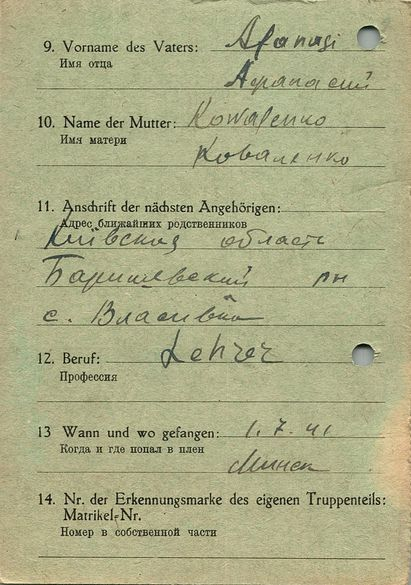 9. Vorname des Vaters: Afanasi
Имя отца
Афанасий
10. Name der Mutter: Kowalenko
Имя матери
Коваленко
11. Anschrift der nächsten Angehörigen:
Адрес ближайших родственников
Київская область
Баришевский рн
с. Власивка
12. Beruf: Lehrer
Профессия
13 Wann und wo gefangen: 1. 7. 41
Когда и где попал в плен
Минск
14. Nr. der Erkennungsmarke des eigenen Truppenteils:
Matrikel-Nr.
Номер в собственной части